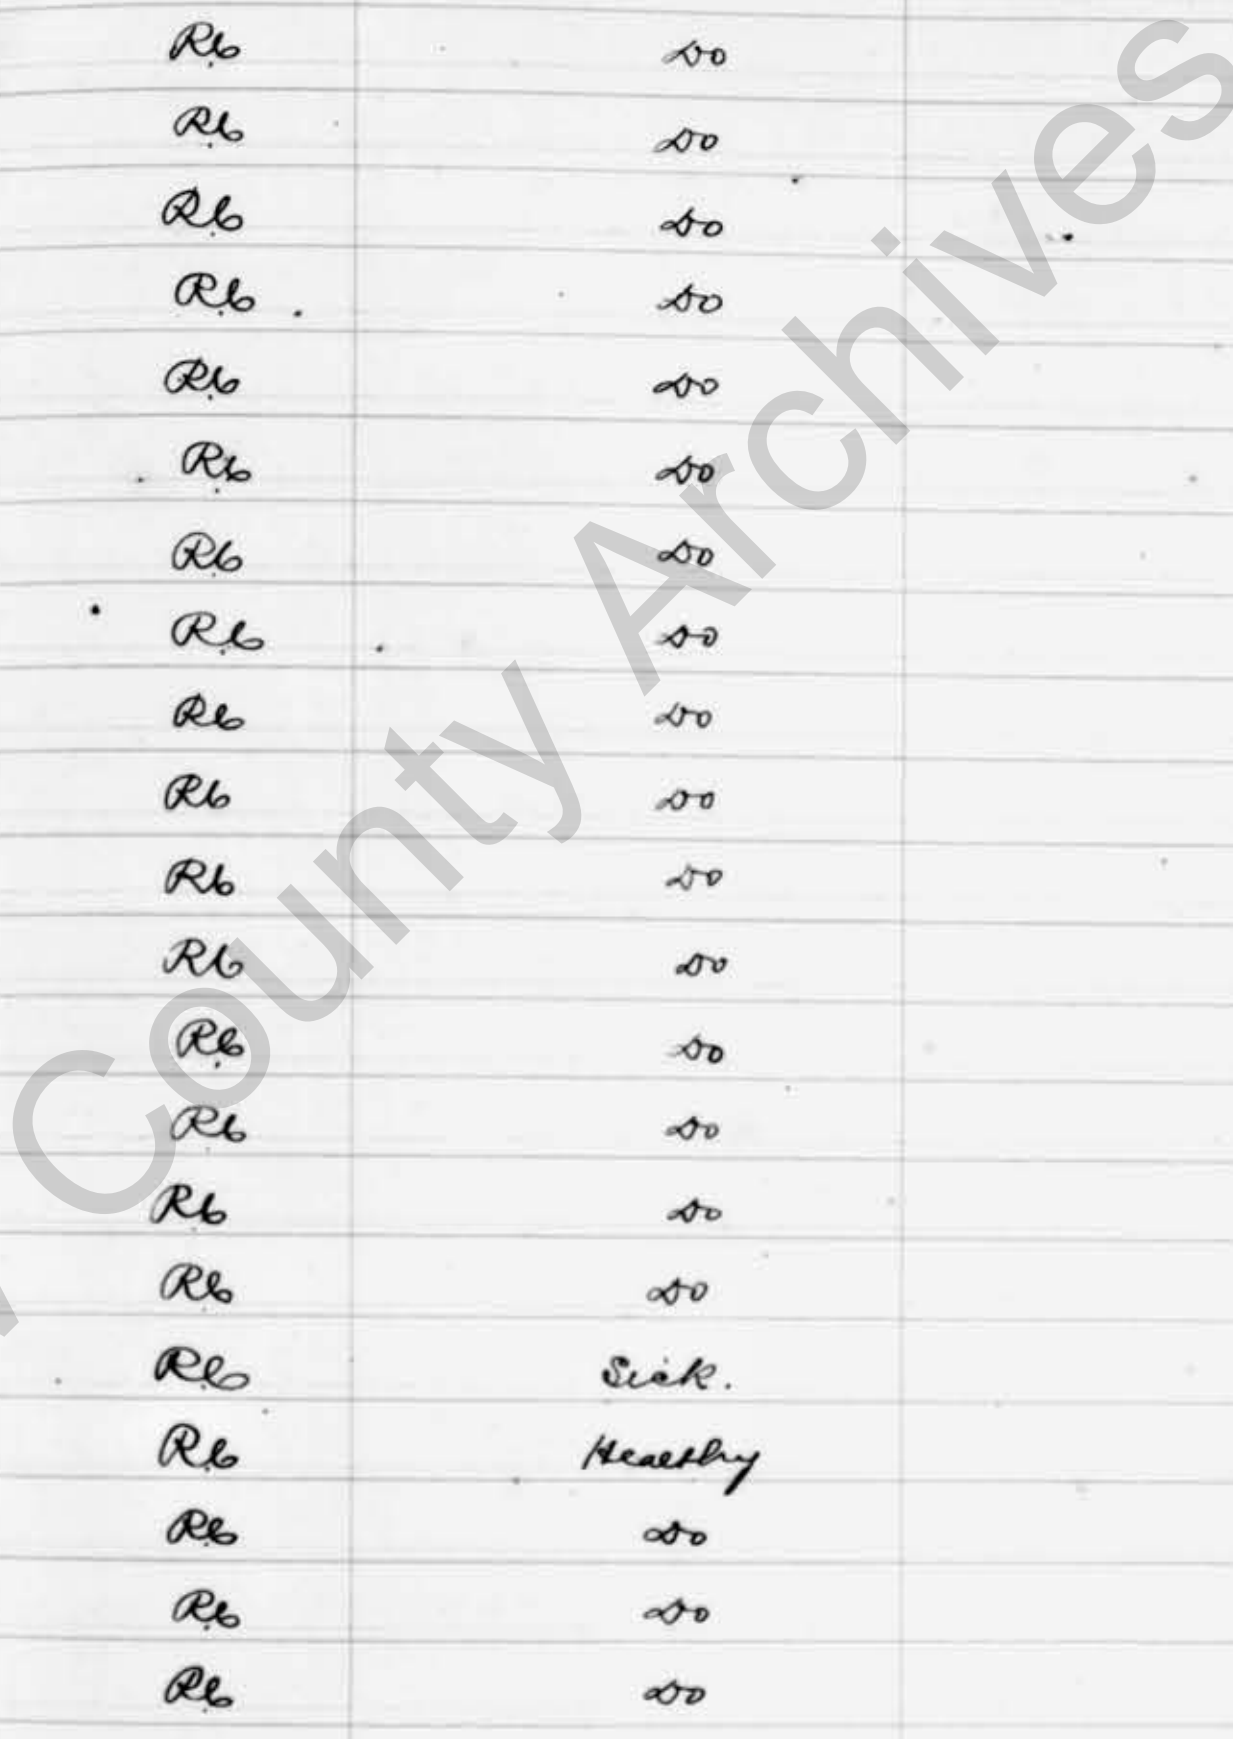 R.C Do
R.C Do
R.C Do
R.C Do
R.C Do
R.C Do
R.C Do
R.C Do
R.C Do
R.C Do
R.C Do
R.C Do
R.C Do
R.C Do
R.C Do
R.C Do
R.C Sick.
R.C Healthy
R.C Do
R.C Do
R.C Do
County Archives